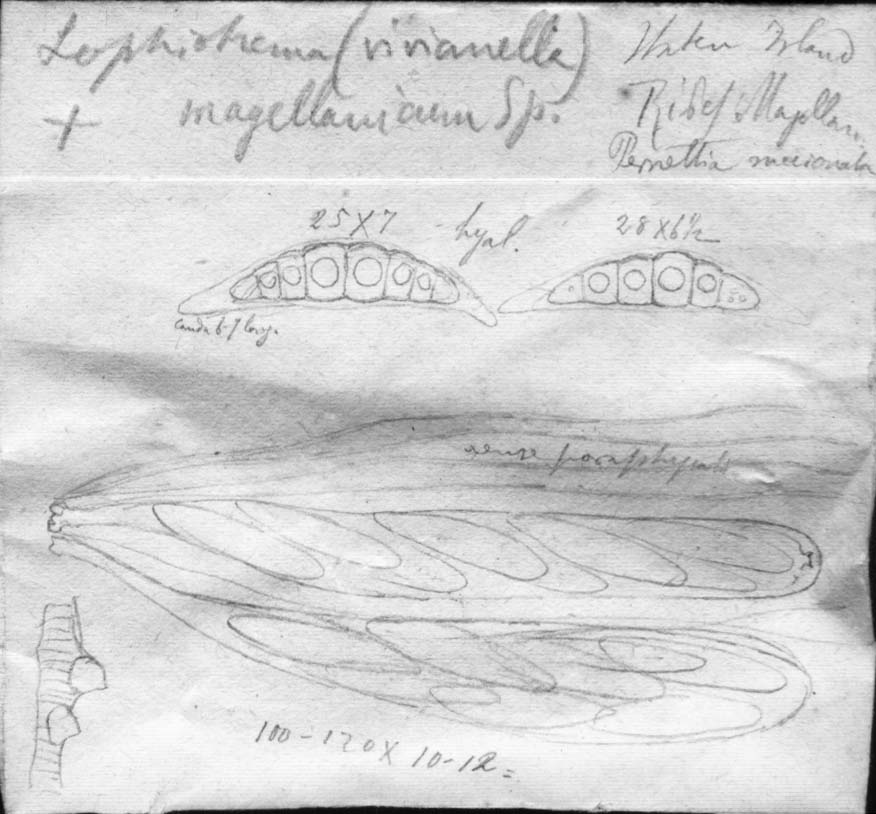 Lophiotrema (vivianella)
+ magellanicum Sp.
Staten Island
Ribes Magellan.
Pernettia mucronata
25X7 hyal. 28X6½
cauda 6-7 long.
paraphysab
100-120X10-12=